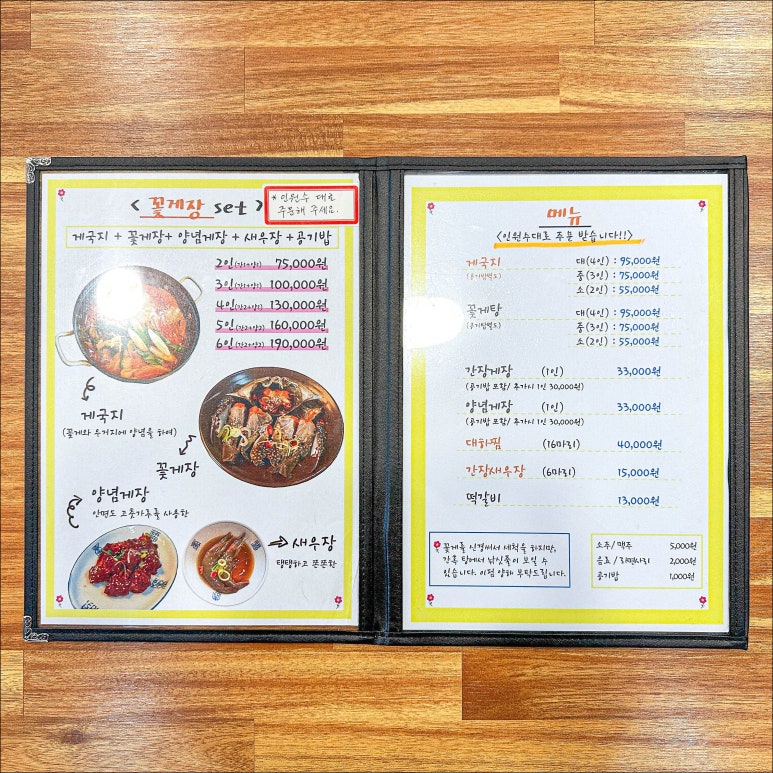 < 꽃게장 set >
* 인원수 대로
주문해 주세요.
게국지 + 꽃게장+ 양념게장 + 새우장 +공기밥
2인(간1+양1) 75,000원
3인 100,000원
4인(간2+양2) 130,000원
5인 160,000원
6인 190,000원
게국지
(꽃게와 우거지에 양념을 하여)
꽃게장
양념게장
안면도 고춧가루를 사용한
새우장
탱탱하고 쫀쫀한
메뉴
<인원수대로 주문 받습니다!!>
게국지 대(4인) : 95,000원
(공기밥별도) 중(3인) : 75,000원
소(2인) : 55,000원
꽃게탕 대(4인) : 95,000원
(공기밥별도) 중(3인) : 75,000원
소(2인) : 55,000원
간장게장 (1인) 33,000원
(공기밥 포함/ 추가시 1인 30,000원)
양념게장 (1인) 33,000원
(공기밥 포함/ 추가시 1인 30,000원)
대하찜 (16마리) 40,000원
간장새우장 (6마리) 15,000원
떡갈비 13,000원
꽃게를 신경써서 세척을 하지만,
간혹 탕에서 낚싯줄이 보일 수
있습니다. 이점 양해 부탁드립니다.
소주/ 맥주 5,000원
음료 / 라면사리 2,000원
공기밥 1,000원